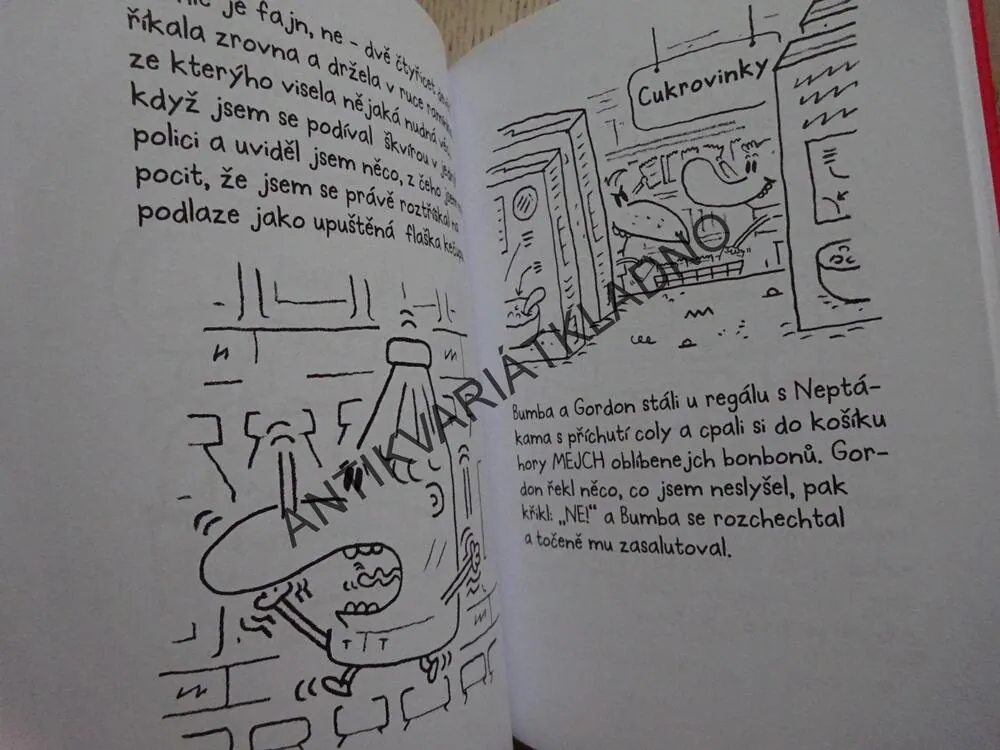 je fajn, ne – dvě čtyřicet
říkala zrovna a držela v ruce
ze kterýho visela nějaká nudná
když jsem se podíval škvírou v
polici a uviděl jsem něco, z čeho
pocit, že jsem se právě roztřískal na
podlaze jako upuštěná flaška
Cukrovinky
Bumba a Gordon stáli u regálu s Neptá-
kama s příchutí coly a cpali si do košíku
hory MEJCH oblíbenejch bonbonů. Gor-
don řekl něco, co jsem neslyšel, pak
křikl: „NE!“ a Bumba se rozchechtal
a točeně mu zasalutoval.
ANTIKVARIÁTKLADNO